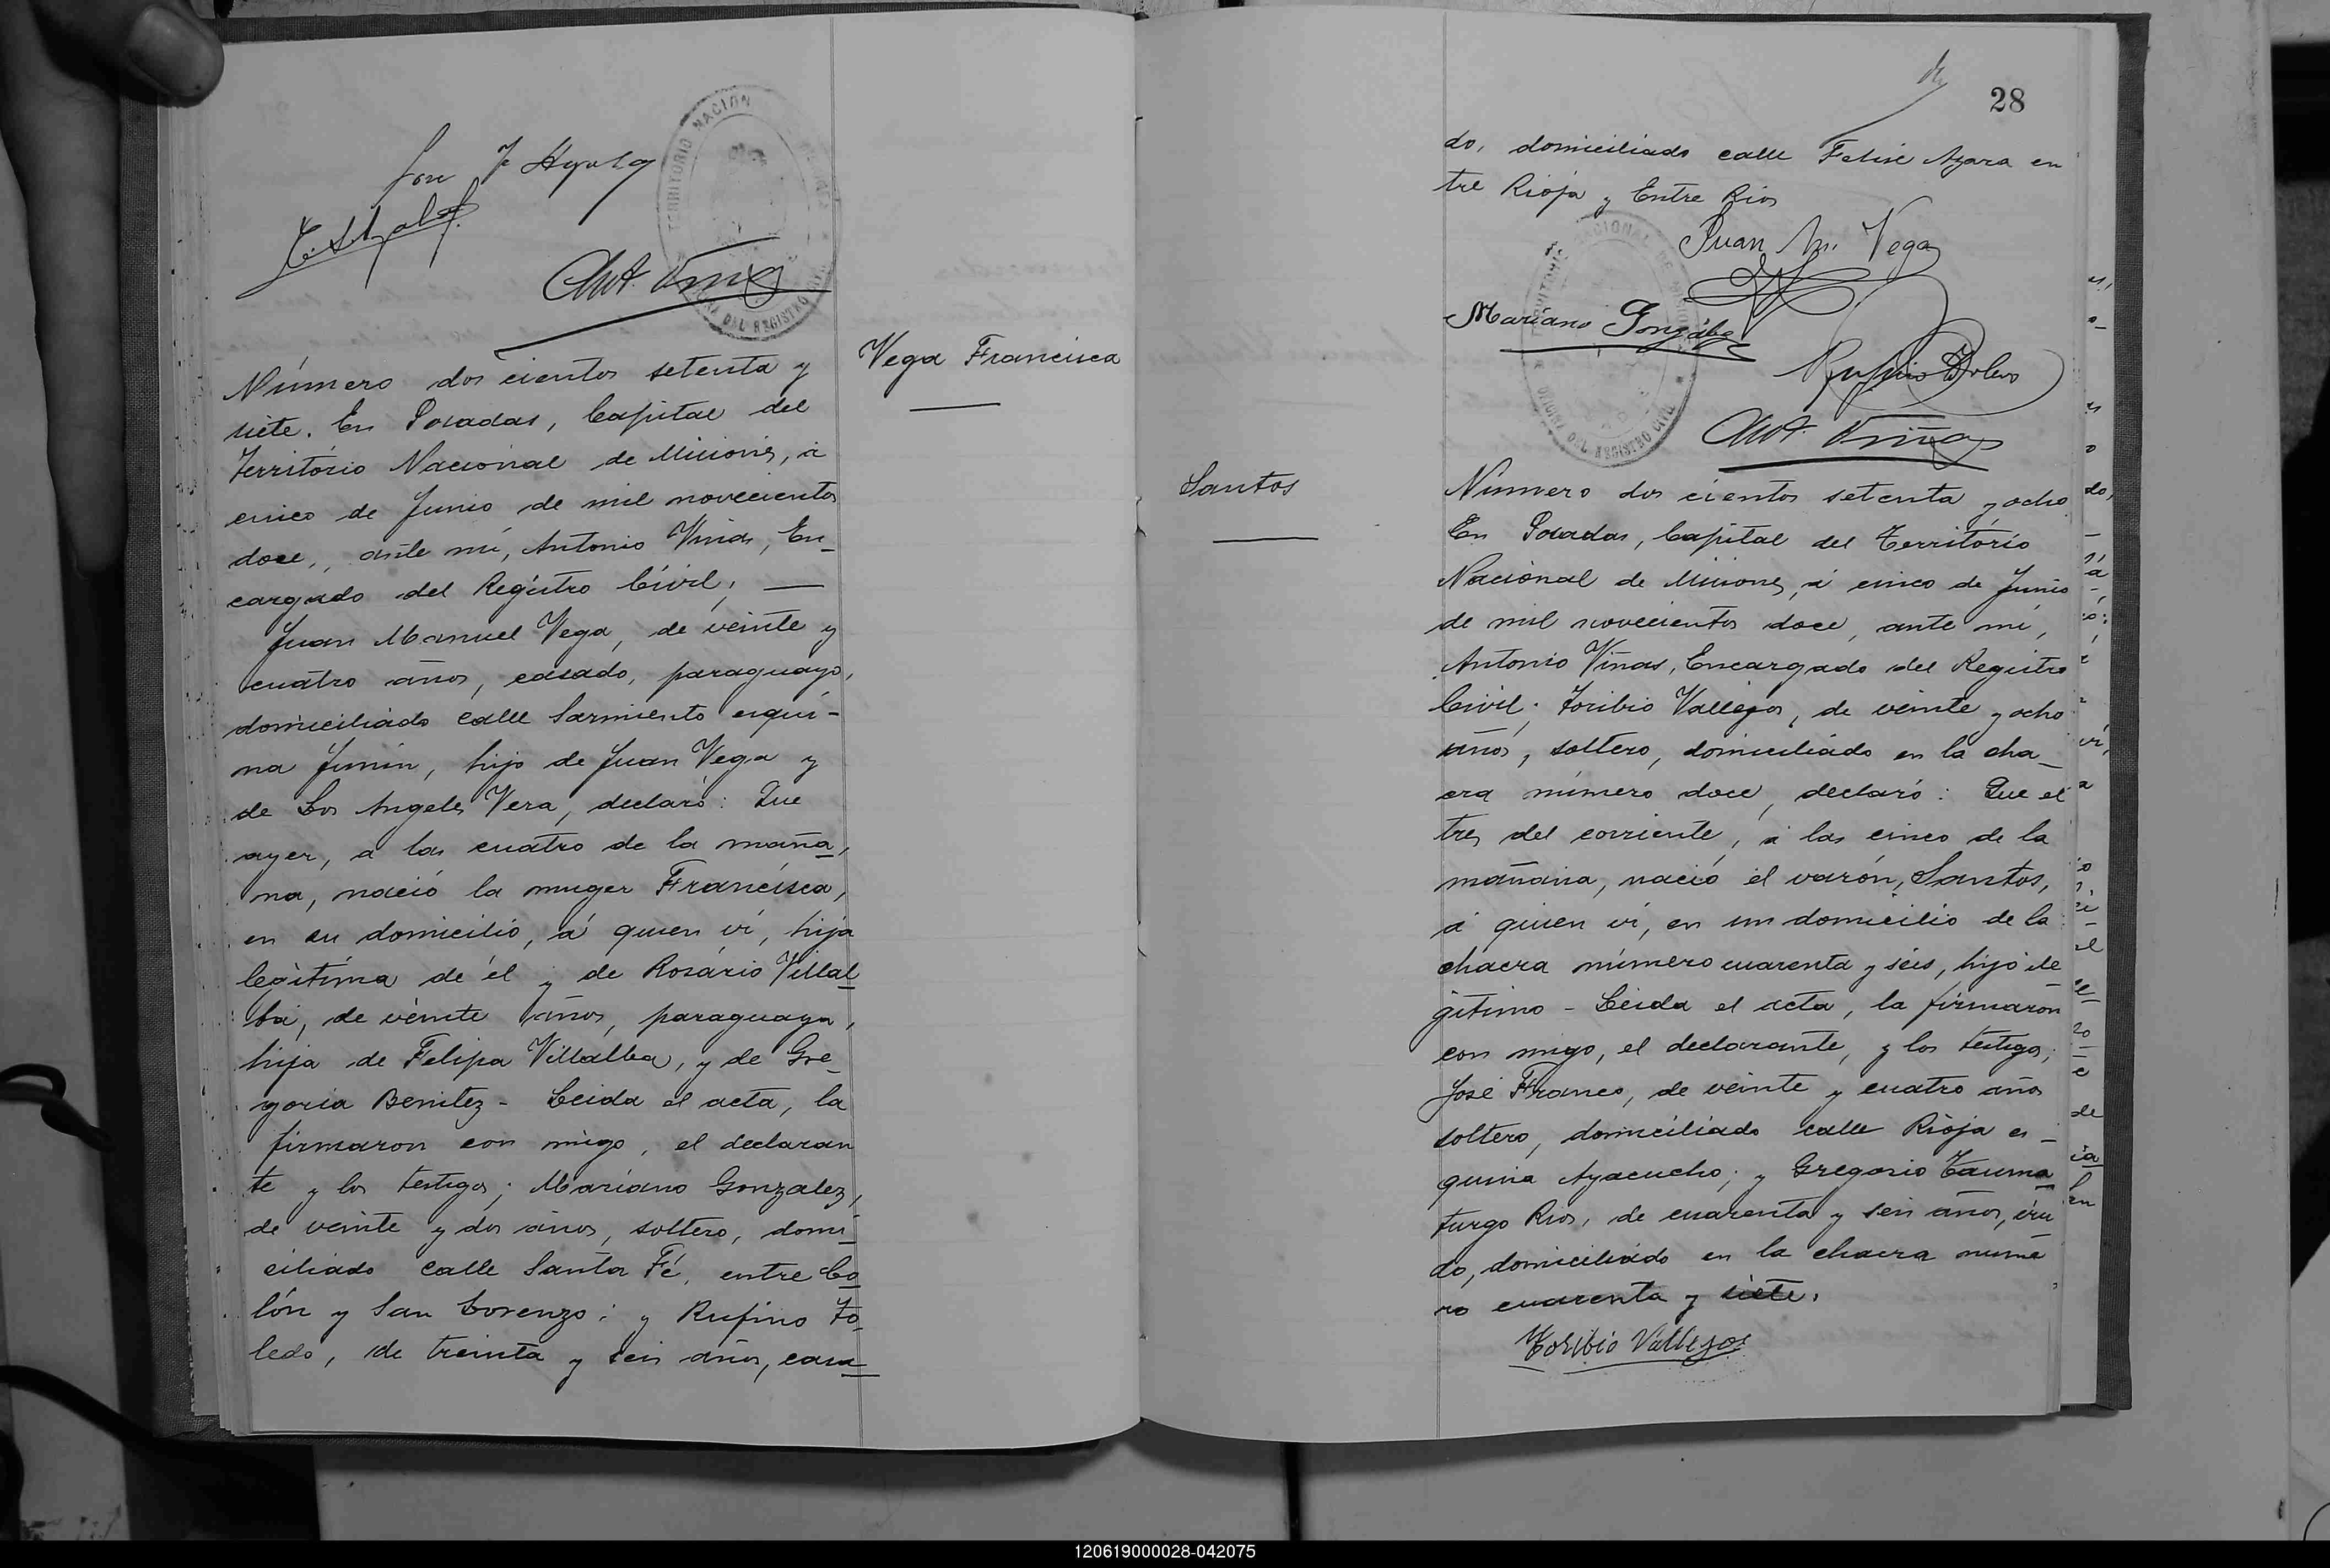 TERRITORIO NACION
OFICINA DEL REGISTRO CIVIL
Ant. Viñas
Vega Francisca
Número dos cientos setenta y
siete. En Posadas, Capital del
Território Nacional de Misiones, á
cinco de Junio de mil novecientos
doce, ante mí, Antonio Viñas, En-
cargado del Registro Civil,
Juan Manuel Vega, de veinte y
cuatro años, casado, paraguayo,
domiciliado calle Sarmiento esqui-
na Junin, hijo de Juan Vega y
de Los Angeles Vera, declaró: Que
ayer, a las cuatro de la maña,
na, nació la muger Francisca,
en su domicilio, á quien ví, hija
legítima de él y de Rosário Villal-
ba, de veinte años, paraguaya,
hija de Felipa Villalba, y de Gre-
goria Benitez - Leida el acta, la
firmaron con migo, el declaran
te y los testigos; Mariano Gonzalez,
de veinte y dos años, soltero, domi-
ciliado calle Santa Fé, entre Co-
lón y San Lorenzo; y Rufino To-
ledo, de treinta y seis años, casa-
28
do, domiciliado calle Felix Azara en
tre Rioja y Entre Rios
Juan M. Vega
Mariano Gonzáles
Rufino Toledo
TERRITORIO NACIONAL DE MISIONES
OFICINA DEL REGISTRO CIVIL
Ant. Viñas
Santos
Número dos cientos setenta y ocho
En Posadas, Capital del Território
Nacional de Misiones, á cinco de Junio
de mil novecientos doce, ante mi,
Antonio Viñas, Encargado del Registro
Civil; Toribio Vallejos, de veinte y ocho
años, soltero, domiciliado en la cha-
cra número doce, declaró: Que el
tres del corriente, á las cinco de la
mañana, nació el varón, Santos,
á quien ví, en un domicilio de la
chacra número cuarenta y seis, hijo ile
gitimo - Leida el acta, la firmaron
con migo, el declarante, y los testigos;
José Franco, de veinte y cuatro años
soltero, domiciliado calle Rioja es-
quina Ayacucho; y Gregorio Tauma-
turgo Rios, de cuarenta y seis años, viu
do, domiciliado en la chacra núme
ro cuarenta y siete.
Toribio Vallejos
120619000028-042075